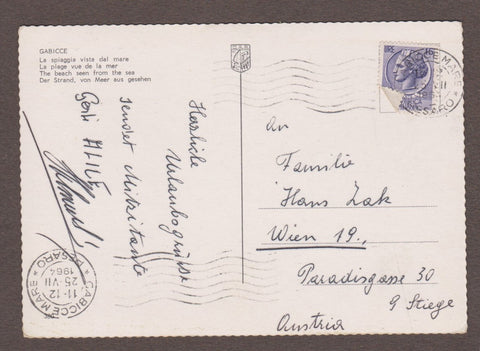 GABICCE
La spiaggia vista dal mare
La plage vue de la mer
The beach seen from the sea
Der Strand, von Meer aus gesehen
Herzliche
Urlaubsgrüsse
sendet Mitzitante
An
Familie
Hans Zak
Wien 19.,
Paradisgasse 30
9 Stiege
Austria
GABICCE MARE
PESARO
11-12
25·VII
1964